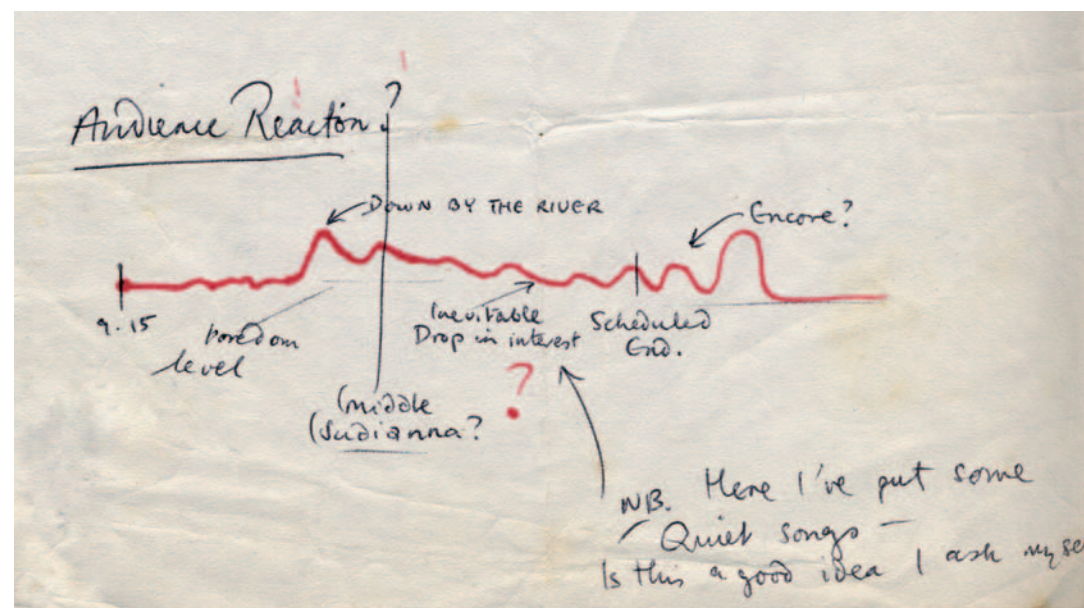 Audience Reaction?
DOWN BY THE RIVER
Encore?
9.15
boredom
level
Inevitable
Drop in interest
Scheduled
End.
?
(middle
(Sudianna?
NB. Here I've put some
Quiet songs –
Is this a good idea I ask myse